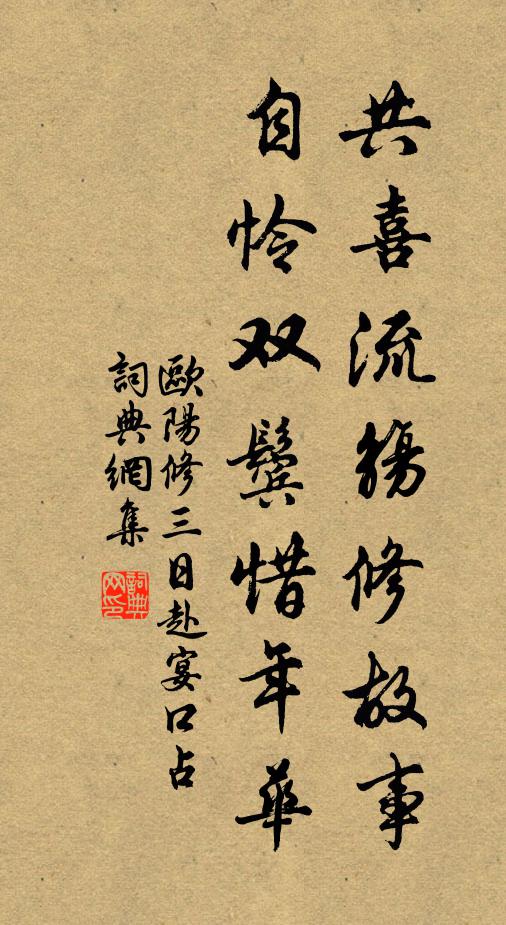 共喜流觞修故事
自怜双鬓惜年華
歐陽修三日赴宴口占
詞典網集
詞典网印